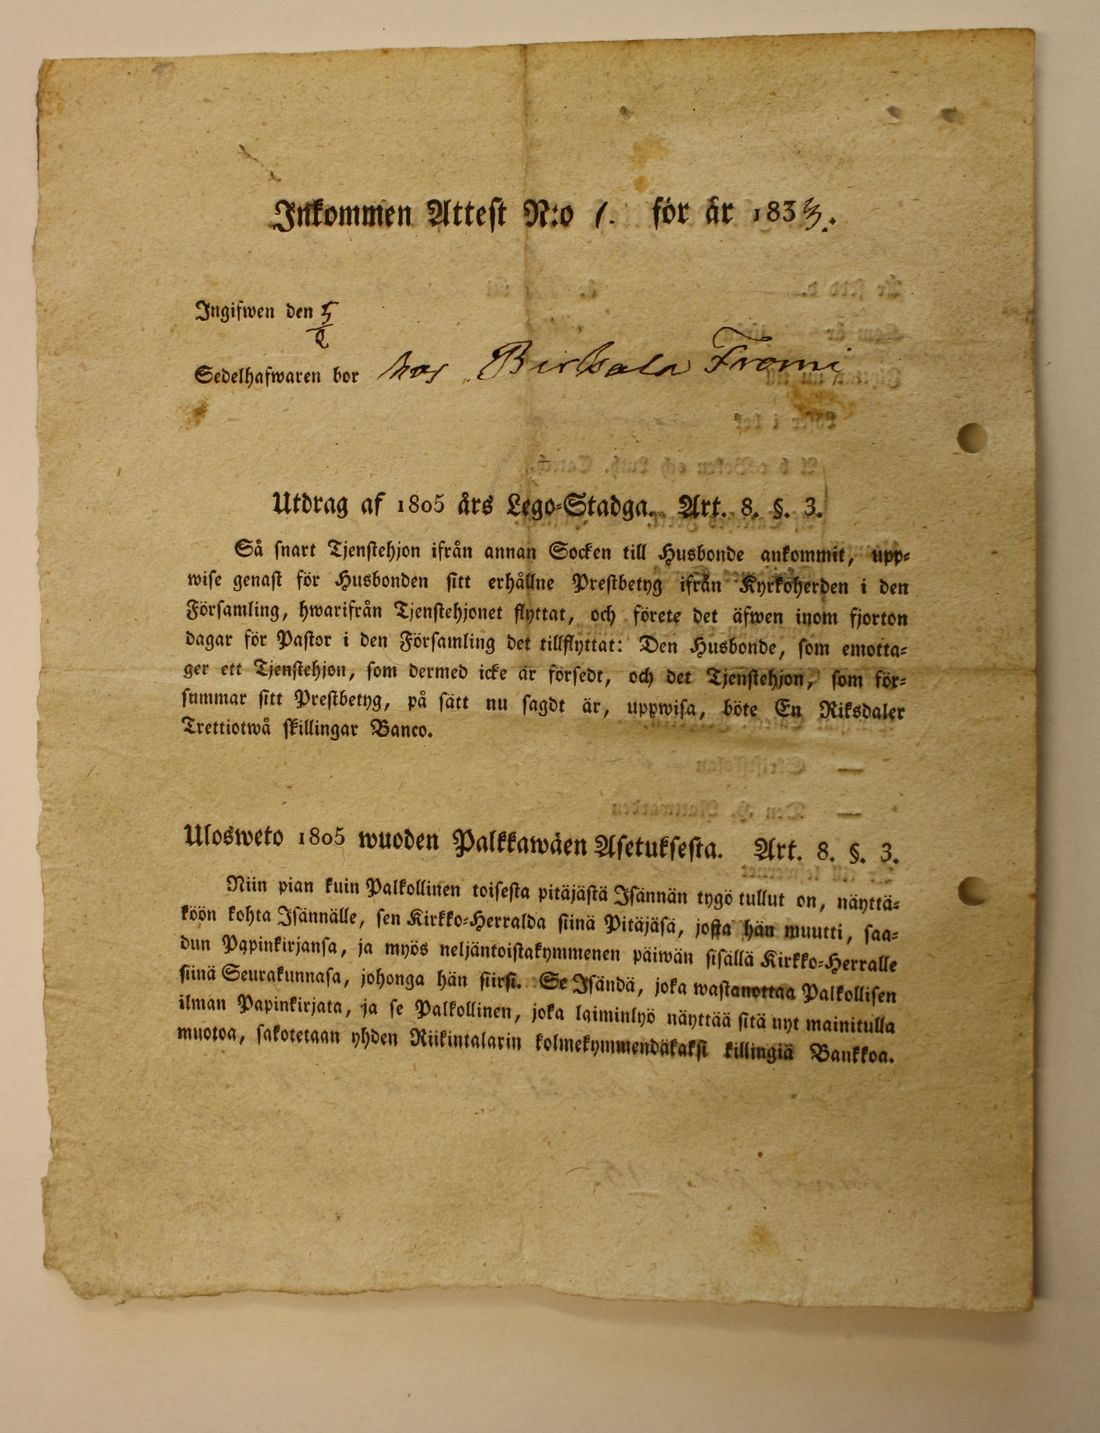 Inkommen Attest N:o 1. för år 1833.
Ingifwen den 5/2
Sedelhafwaren bor hos Birkala Fromi
Utdrag af 1805 års Lego-Stadga. Art. 8. §. 3.
Så snart Tjenstehjon ifrån annan Socken till Husbonde ankommit, upp-
wise genast för Husbonden sitt erhållne Prestbetyg ifrån Kyrkoherden i den
Församling, hwarifrån Tjenstehjonet flyttat, och förete det äfwen inom fjorton
dagar för Pastor i den Församling det tillflyttat: Den Husbonde, som emotta-
ger ett Tjenstehjon, som dermed icke är försedt, och det Tjenstehjon, som för-
summar sitt Prestbetyg, på sätt nu sagdt är, uppwisa, böte En Riksdaler
Trettiotwå skillingar Banco.
Ulosweto 1805 wuoden Palkkawäen Asetuksesta. Art. 8. §. 3.
Niin pian kuin Palkollinen toisesta pitäjästä Isännän tygö tullut on, näyttä-
köön kohta Isännälle, sen Kirkko-Herralda siinä Pitäjäsä, josta hän muutti, saa-
dun Papinkirjansa, ja myös neljäntoistakymmenen päiwän sisällä Kirkko-Herralle
siinä Seurakunnasa, johonga hän siirsi. Se Isändä, joka wastanottaa Palkollisen
ilman Papinkirjata, ja se Palkollinen, joka laiminlyö näyttää sitä nyt mainitulla
muotoa, sakotetaan yhden Riikintalarin kolmekymmendäkaksi killingiä Bankkoa.